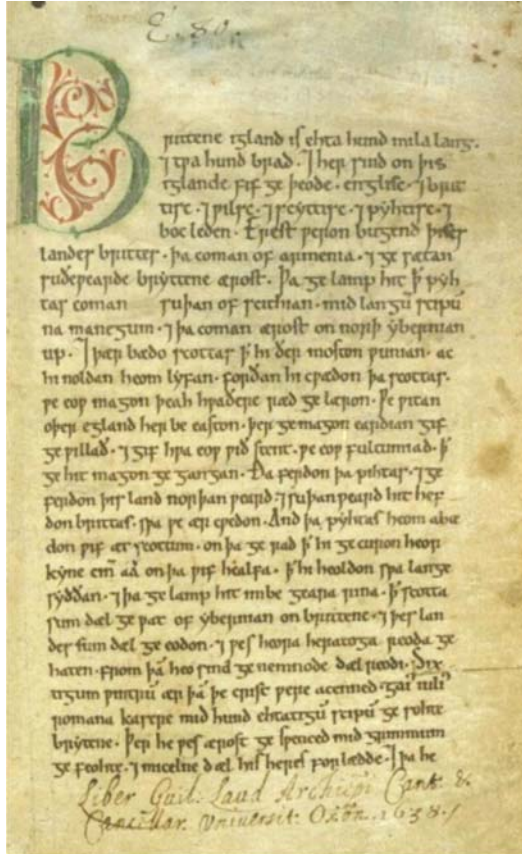 E. 80.
Brittene igland is ehta hund mila lang.
⁊ tƿa hund brad. ⁊ her sind on þis
iglande fif ge þeode. englisc. ⁊ brit
tisc. ⁊ ƿilsc. ⁊ scyttisc. ⁊ pyhtisc. ⁊
boc leden. Erest ƿeron bugend þises
landes brittes. þa coman of armenia. ⁊ ge sætan
suðeƿearde bryttene ærost. Þa ge lamp hit ꝥ pyh
tas coman suþan of scithian. mid langū scipū
na manegum. ⁊ þa coman ærost on norþ ybernian
up. ⁊ þær bædo scottas ꝥ hi ðer moston ƿunian. ac
hi noldan heom lyfan. forðan hi cƿædon þa scottas.
ƿe eoƿ magon þeah hƿaðere ræd ge læron. Ƿe ƿitan
oþer egland her be easton. þer ge magon eardian gif
ge ƿillað. ⁊ gif hƿa eoƿ ƿið stent. ƿe eoƿ fultumiað. ꝥ
ge hit magon ge gangan. Ða ferdon þa pihtas. ⁊ ge
ferdon þis land norþan ƿeard. ⁊ suþan ƿeard hit hef
don brittas. sƿa ƿe ær cƿedon. And þa pyhtas heom abæ
don ƿif æt scottum. on þa ge rad ꝥ hi ge curon heor
kyne cin̄ aa on þa ƿif healfa. ꝥ hi heoldon sƿa lange
syððan. ⁊ þa ge lamp hit imbe geara rina. ꝥ scotta
sum dæl ge ƿat of ybernian on brittene. ⁊ þes lan
des sum dæl ge eodon. ⁊ ƿes heora heratoga reoda ge
haten. from þā heo sind ge nemnode dæl reodi. Six
tigum ƿintrū ær þā þe crist ƿere acenned. gai' iuli'
romana kasere mid hund ehtatigū scipū ge sohte
brytene. Þer he ƿes ærost ge sƿenced mid grimmum
ge feohte. ⁊ micelne dæl his heres forlædde. ⁊ þa he
Liber Guil: Laud Archiepi Cant: &
Cancellar. Universit: Oxōn. 1638.